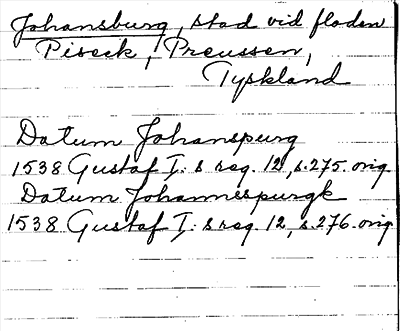 Johansburg, stad vid floden
Piseck, Preussen,
Tyskland
Datum Johanspurg
1538 Gustaf I: s reg. 12, s. 275. orig
Datum Johannespurgk
1538 Gustaf I: s reg. 12, s. 276. orig